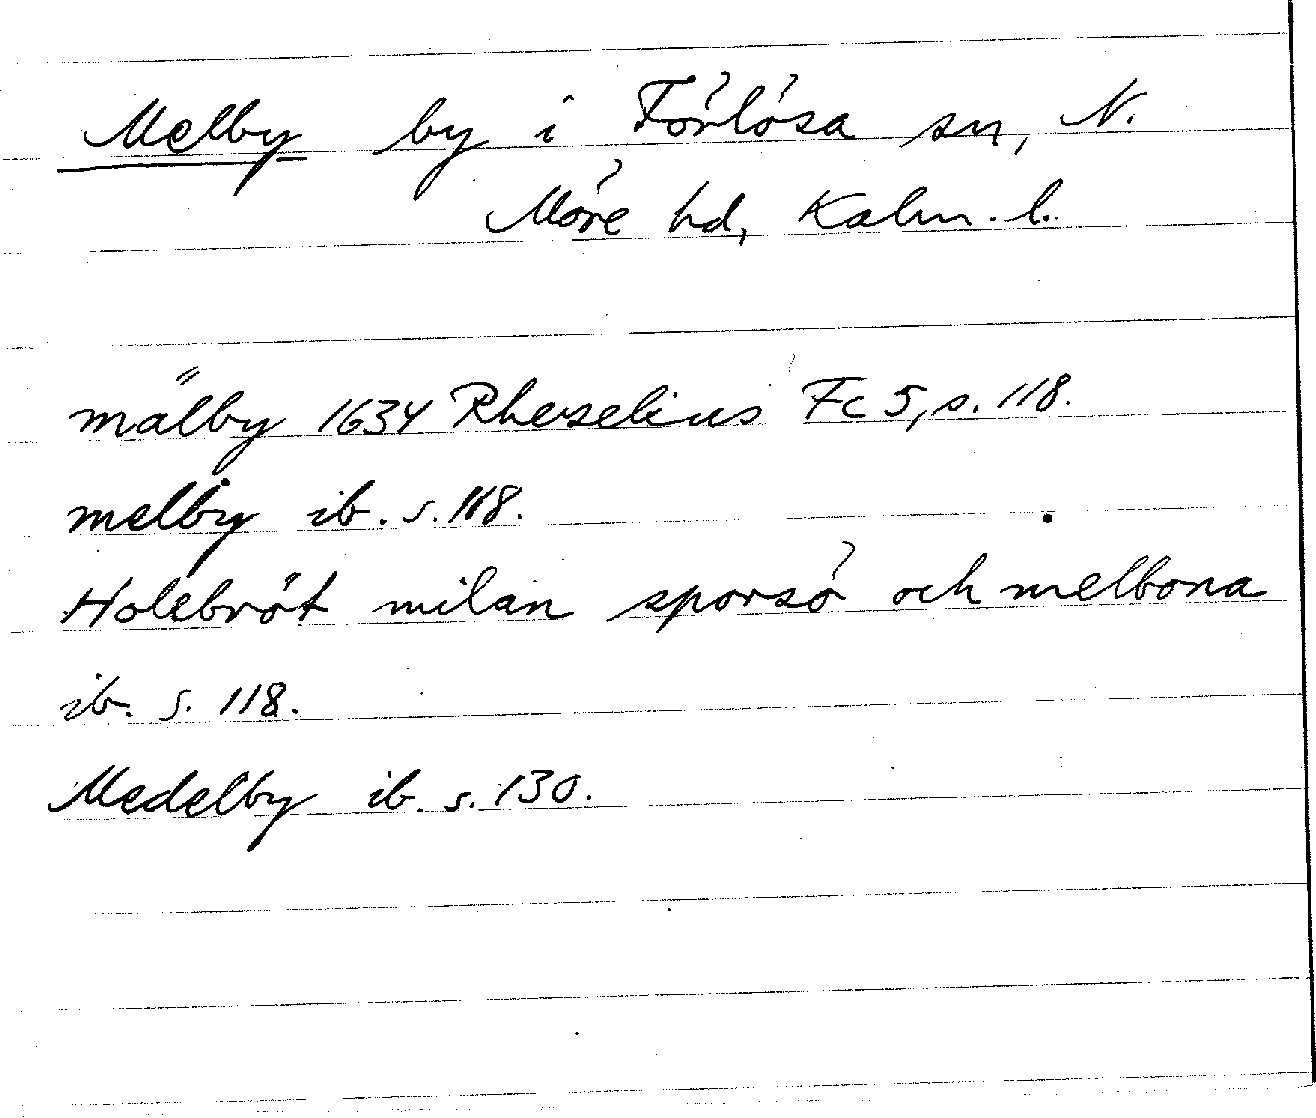 Melby by i Förlösa sn, N.
Möre hd, Kalm. l.
mälby 1634 Rhezelius Fc 5, s. 118.
melby ib. s. 118.
Holebröt milan sporsö och melbona
ib. s. 118.
Medelby ib. s. 130.